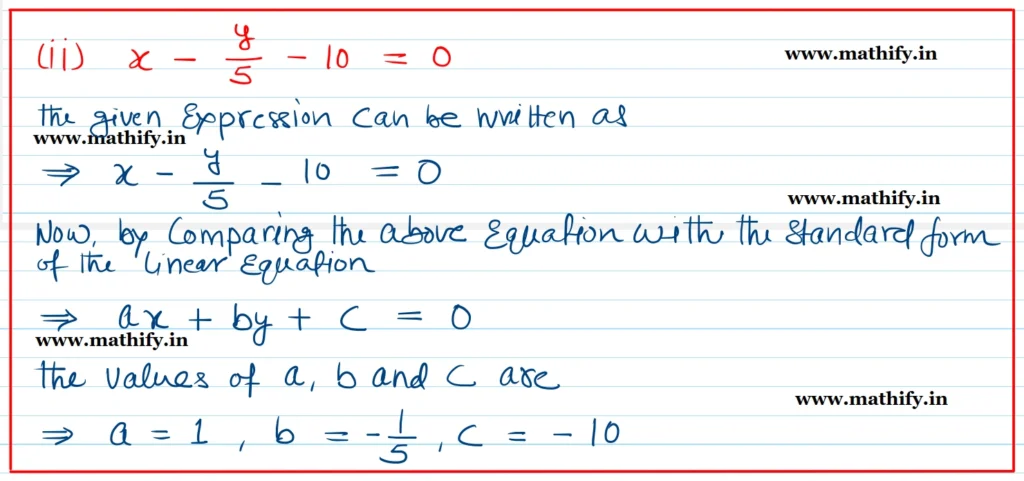 (ii) x - y/5 - 10 = 0
www.mathify.in
the given Expression can be written as
www.mathify.in
⇒ x - y/5 - 10 = 0
www.mathify.in
Now, by comparing the above Equation with the standard form
of the linear Equation
⇒ ax + by + c = 0
www.mathify.in
the values of a, b and c are
www.mathify.in
⇒ a = 1 , b = -1/5 , c = - 10